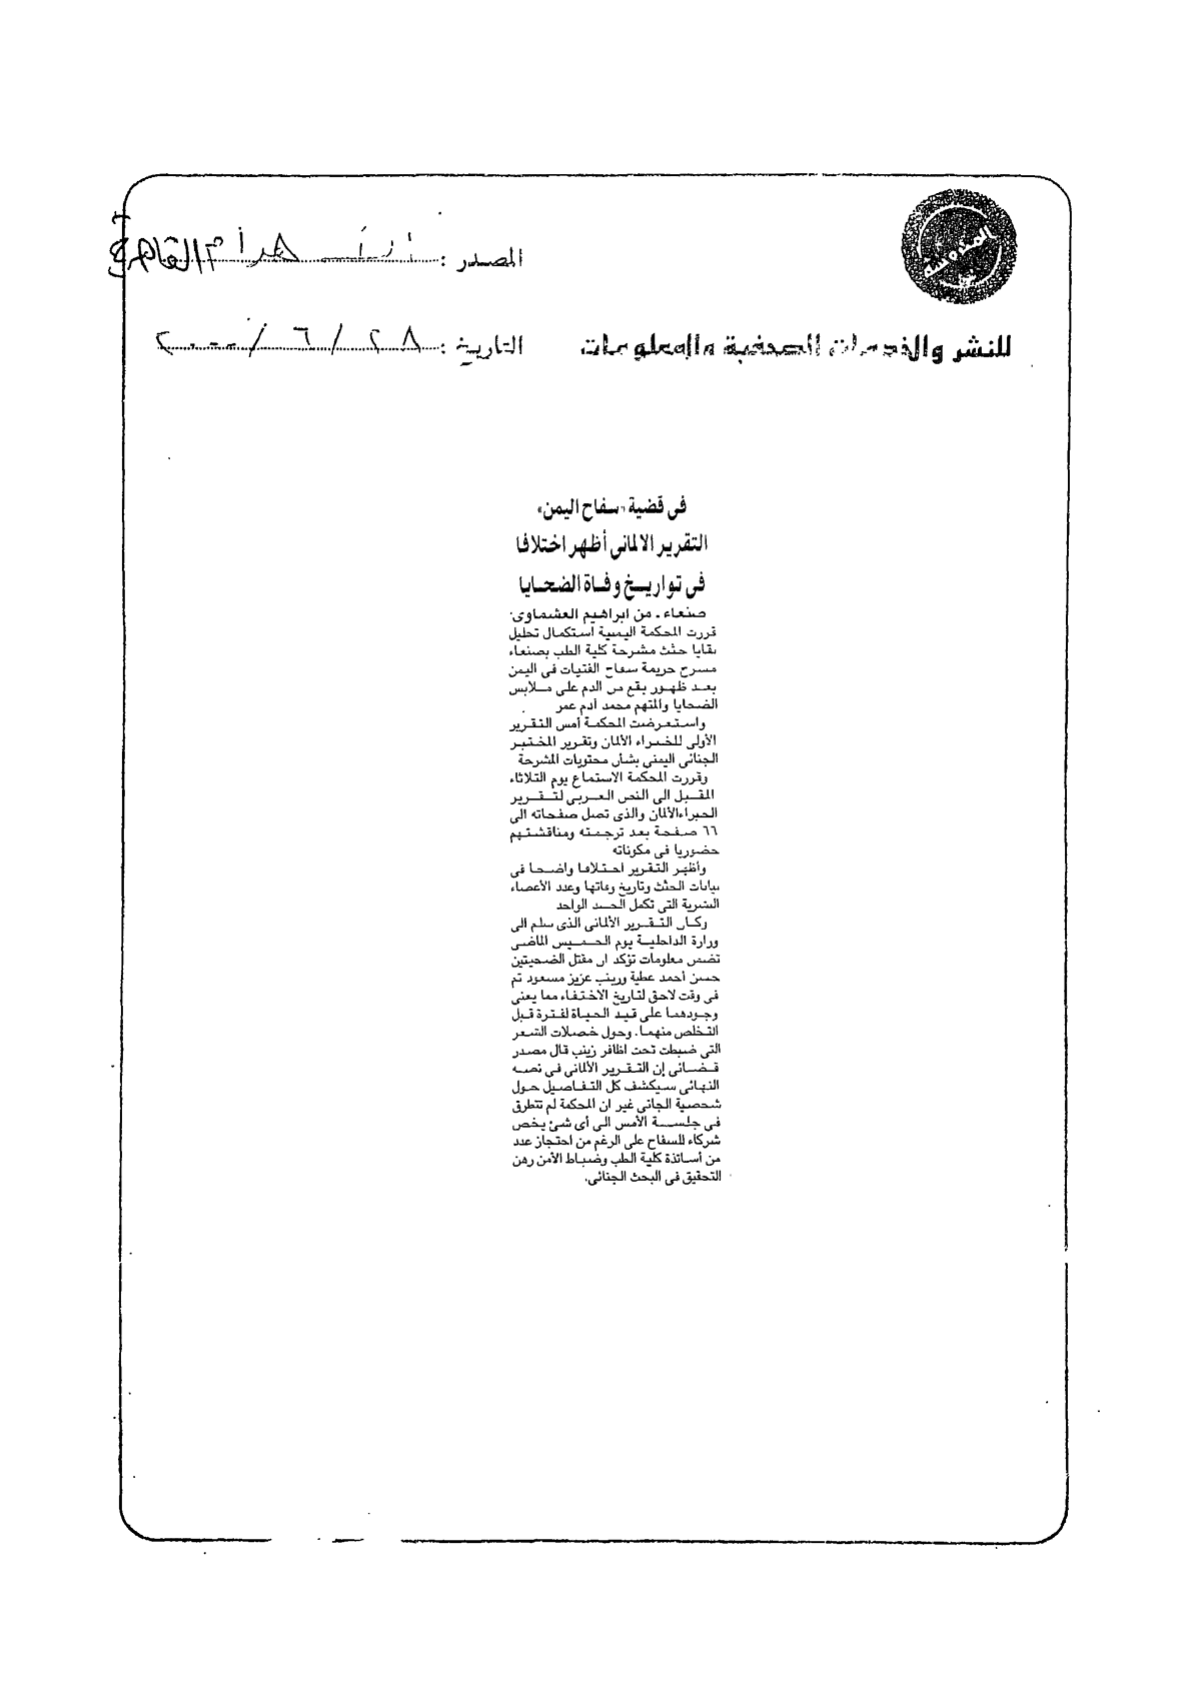 المصدر : الأهرام القاهرة
للنشر والخدمات الصحفية والمعلومات
التاريخ : ٢٨ / ٦ / ٢٠٠٠
فى قضية «سفاح اليمن»
التقرير الالمانى أظهر اختلافا
فى تواريخ وفاة الضحايا
صنعاء ـ من ابراهيم العشماوى:
قررت المحكمة اليمنية استكمال تحليل
بقايا جثث مشرحة كلية الطب بصنعاء
مسرح جريمة سفاح الفتيات فى اليمن
بعد ظهور بقع من الدم على ملابس
الضحايا والمتهم محمد آدم عمر .
واستعرضت المحكمة أمس التقرير
الأولى للخبراء الألمان وتقرير المختبر
الجنائى اليمنى بشأن محتويات المشرحة
وقررت المحكمة الاستماع يوم الثلاثاء
المقبل الى النص العربى لتقرير
الخبراء الألمان والذى تصل صفحاته الى
٦٦ صفحة بعد ترجمته ومناقشتهم
حضوريا فى مكوناته
وأظهر التقرير اختلافا واضحا فى
بيانات الجثث وتاريخ وفاتها وعدد الأعضاء
البشرية التى تكمل الجسد الواحد
وكان التقرير الألمانى الذى سلم الى
وزارة الداخلية يوم الخميس الماضى
تضمن معلومات تؤكد ان مقتل الضحيتين
حسن أحمد عطية وزينب عزيز مسعود تم
فى وقت لاحق لتاريخ الاختفاء مما يعنى
وجودهما على قيد الحياة لفترة قبل
التخلص منهما. وحول خصلات الشعر
التى ضبطت تحت اظافر زينب قال مصدر
قضائى إن التقرير الألمانى فى نصه
النهائى سيكشف كل التفاصيل حول
شخصية الجانى غير ان المحكمة لم تتطرق
فى جلسة الأمس الى أى شئ يخص
شركاء للسفاح على الرغم من احتجاز عدد
من أساتذة كلية الطب وضباط الأمن رهن
التحقيق فى البحث الجنائى.